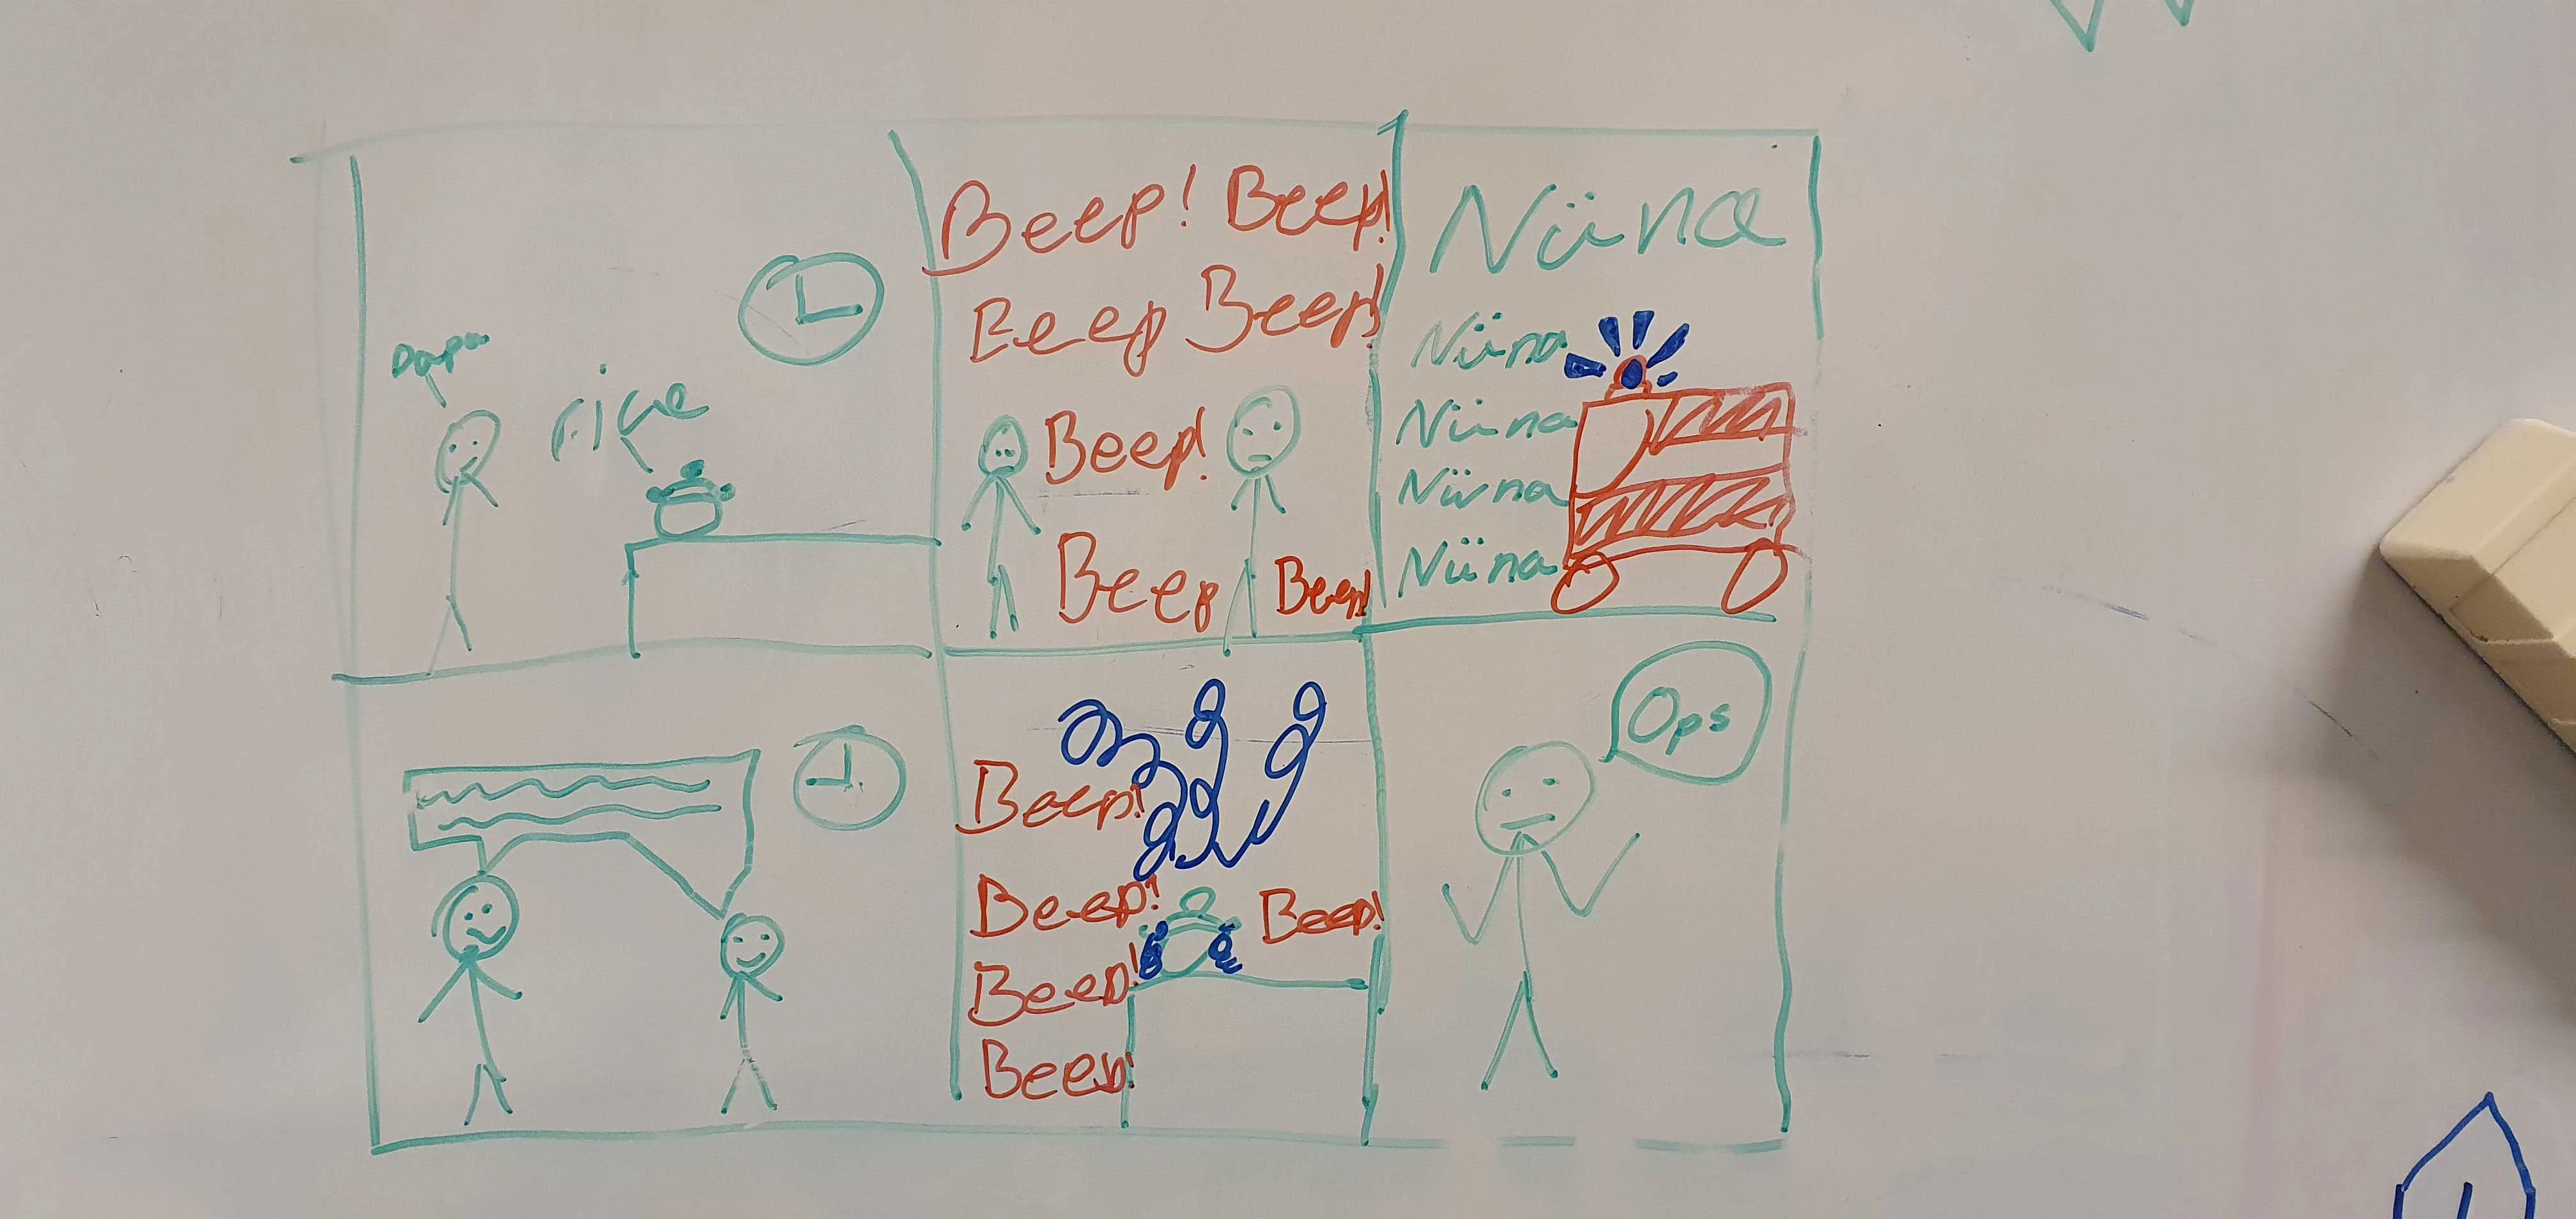 Papa
rice
Beep! Beep!
Beep Beep!
Beep!
Beep Beep!
Nüna
Nüna
Nüna
Nüna
Nüna
Beep!
Beep! Beep!
Beep!
Beep!
Ops